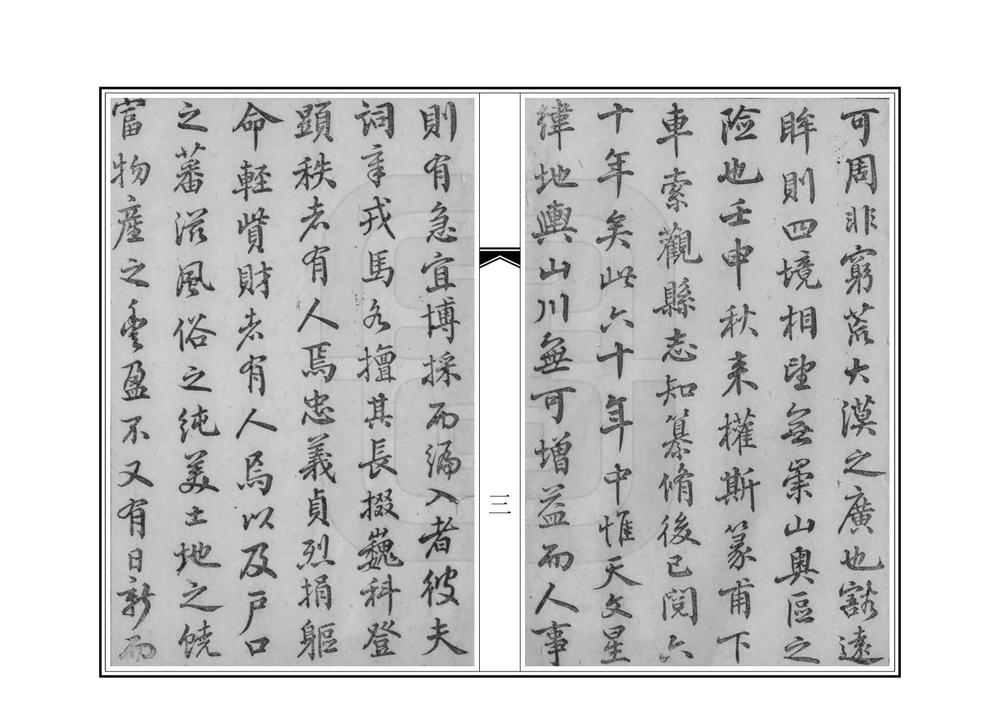 可周非窮荒大漠之廣也豁遠
眸則四境相望無崇山奥區之
險也壬申秋来權斯篆甫下
車索觀縣志知纂脩後已閱六
十年矣此六十年中惟天文星
緯地輿山川無可增益而人事
則有急宜博採而编入者彼夫
詞章戎馬各擅其長掇巍科登
顕秩者有人焉忠義貞烈捐軀
命輕貲財者有人焉以及户口
之蕃滋風俗之純美土地之饒
富物産之豊盈不又有日新而
三